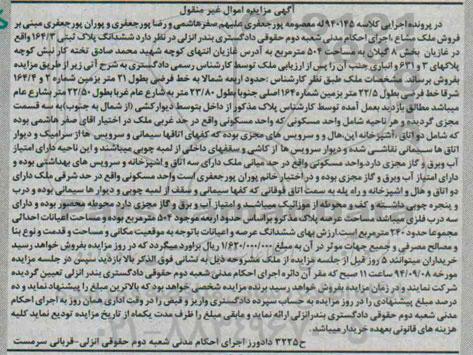 آگهی مزایده اموال غیر منقول
در پرونده اجرایی کلاسه ۹۴۰۱۴۵ له معصومه پورجعفری علیهم صفرهاشمی و رضا پورجعفری و پوران پورجعفری مبنی بر
فروش ملک مشاع اجرای احکام مدنی شعبه دوم حقوقی دادگستری بندر انزلی در نظر دارد ششدانگ پلاک ثبتی ۱۶۴/۳ واقع
در غازیان بخش ۸ گیلان به مساحت ۵۰۴ مترمربع به آدرس غازیان انتهای کوچه شهید محمد صادق تخته کار نبش کوچه
پلاکهای ۳ و ۶۳۱ و انباری جنب آن را پس از ارزیابی ملک توسط کارشناس رسمی دادگستری به شرح آتی زیر از طریق مزایده
بفروش برساند. مشخصات ملک طبق نظر کارشناس :حدود اربعه شمالا به خط فرضی بطول ۲۱ متر بزمین شماره ۲ و ۱۶۴/۴
شرقا خط فرضی بطول ۲۲/۵ متر بزمین شماره ۱۶۴ اصلی جنوبا بطول ۲۳/۸۰ متر به شارع عام غربا بطول ۲۲/۵۰ متر بشارع عام
میباشد مطابق بازدید بعمل آمده توسط کارشناس پلاک مذکور از داخل بتوسط دیوارکشی (از شمال به جنوب) به سه قسمت
مجزی گردیده و هر ناحیه شامل واحد مسکونی که واحد مسکونی واقع در حد غربی ملک در اختیار آقای صفر هاشمی بوده
که شامل دو اتاق ،آشپزخانه اپن،هال و و سرویس های مجزی بوده که کفهای اتاقها سیمانی و سرویس ها از سرامیک و دیوار
اتاق ها سیمانی نقاشی شده و دیوار سرویس ها از کاشی و سقفهای داخلی از لمبه چوبی میباشند و این ناحیه دارای امتیاز
آب وبرق و گاز مجزی دارد.واحد مسکونی واقع در حد میانی ملک دارای سه اتاق و آشپزخانه و سرویس های بهداشتی بوده و
دارای امتیاز آب وبرق و گاز مجزی بوده و در اختیار خانم پوران پورجعفری است واحد مسکونی واقع در حد شرقی ملک دارای
دو اتاق و هال و آشپزخانه و راه پله به سمت اتاق فوقانی که کفها سیمانی و سقف از لمبه چوبی و دیوار ها سیمانی بوده و درب
و پنجره چوبی داشته و کف و محوطه از موزائیک میباشد و امتیاز آب و برق و گاز مجزی دارد محوطه محصور بوده و دارای
سه درب فلزی میباشد.مساحت عرصه پلاک مذکور براساس حدود اربعه موجود ۵۰۴ مترمربع بوده و مساحت اعیانات احداثی
مجموعا حدود ۲۴۰ مترمربع است ارزش بهای ششدانگ عرصه و اعیانات باتوجه به موقعیت مکانی و مساحت و قدمت و نوع بنا
و مصالح مصرفی و جمیع جهات موثر در آن به مبلغ ۱/۶۲۰/۰۰۰/۰۰۰ ریال برآورد میگردد که در روز مزایده بفروش خواهد رسید
خریداران میتوانند ۵ روز قبل از جلسه مزایده از ملک مشروحه ذیل به نشانی فوق الذکر بالا بازدید نمایند سپس در جلسه مزایده
مورخه ۹۴/۰۹/۰۸ ساعت ۱۱ صبح که مقر آن دائره اجرای احکام مدنی شعبه دوم حقوقی دادگستری بندر انزلی تعیین گردیده
شرکت نمایند و در زمان مزایده بفروش خواهد رسید برنده مزایده شخصی خواهد بود که بالاترین مبلغ را پیشنهاد نماید و ده
درصد مبلغ پیشنهادی را در روز مزایده به حساب سپرده دادگستری واریز و فیش را در وقت اداری همان روز به اجرای احکام
مدنی شعبه دوم حقوقی دادگستری بندر انزلی ارائه نماید و مابقی مبلغ را ظرف مدت یکماه از تاریخ مزایده تودیع نماید کلیه
هزینه های قانونی بعهده خریدار میباشد.
ح۳۲۲۵ دادورز اجرای احکام مدنی شعبه دوم حقوقی انزلی-قربانی سرمست